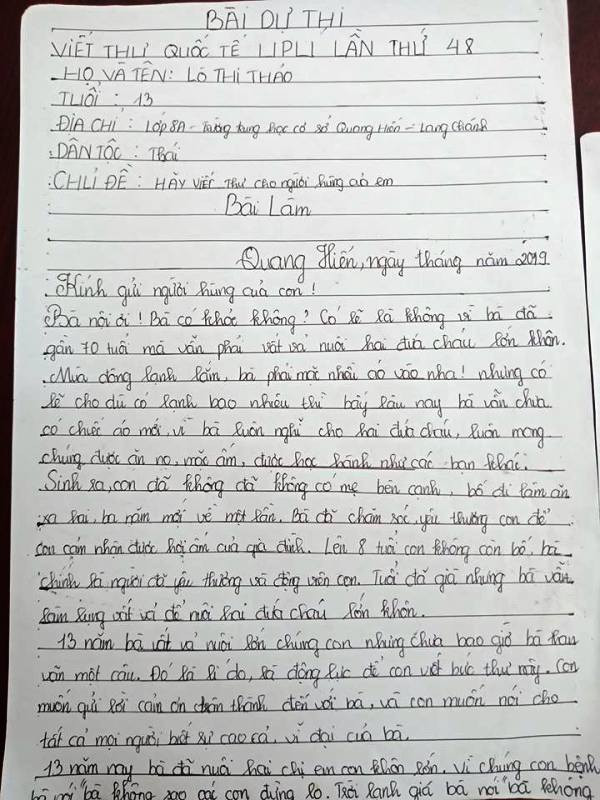 BÀI DỰ THI
VIẾT THƯ QUỐC TẾ UPU LẦN THỨ 48
HỌ VÀ TÊN: LÒ THỊ THẢO
TUỔI : 13
ĐỊA CHỈ : Lớp 8A - Trường trung học cơ sở Quang Hiến - Lang Chánh
DÂN TỘC : Thái
CHỦ ĐỀ : HÃY VIẾT THƯ CHO NGƯỜI HÙNG CỦA EM
Bài Làm
Quang Hiến, ngày tháng năm 2019
Kính gửi người hùng của con !
Bà nội ơi ! Bà có khỏe không ? Có lẽ là không vì bà đã
gần 70 tuổi mà vẫn phải vất vả nuôi hai đứa cháu lớn khôn.
Mùa đông lạnh lắm, bà phải mặc nhiều áo vào nha ! nhưng có
lẽ cho dù có lạnh bao nhiêu thì bấy lâu nay bà vẫn chưa
có chiếc áo mới, vì bà luôn nghĩ cho hai đứa cháu, luôn mong
chúng được ăn no, mặc ấm, được học hành như các bạn khác.
Sinh ra, con đã không đã không có mẹ bên cạnh, bố đi làm ăn
xa hai, ba năm mới về một lần. Bà đã chăm sóc, yêu thương con để
con cảm nhận được hơi ấm của gia đình. Lên 8 tuổi con không còn bố, bà
chính là người đã yêu thương và động viên con. Tuổi đã già nhưng bà vẫn
làm lụng vất vả để nuôi hai đứa cháu lớn khôn.
13 năm bà vất vả nuôi lớn chúng con nhưng chưa bao giờ bà than
vãn một câu. Đó là lí do, là động lực để con viết bức thư này. Con
muốn gửi lời cảm ơn chân thành đến với bà, và con muốn nói cho
tất cả mọi người biết sự cao cả, vĩ đại của bà.
13 năm nay bà đã nuôi hai chị em con khôn lớn. Vì chúng con bệnh
bà nói "bà không sao các con đừng lo. Trời lạnh giá bà nói "bà không